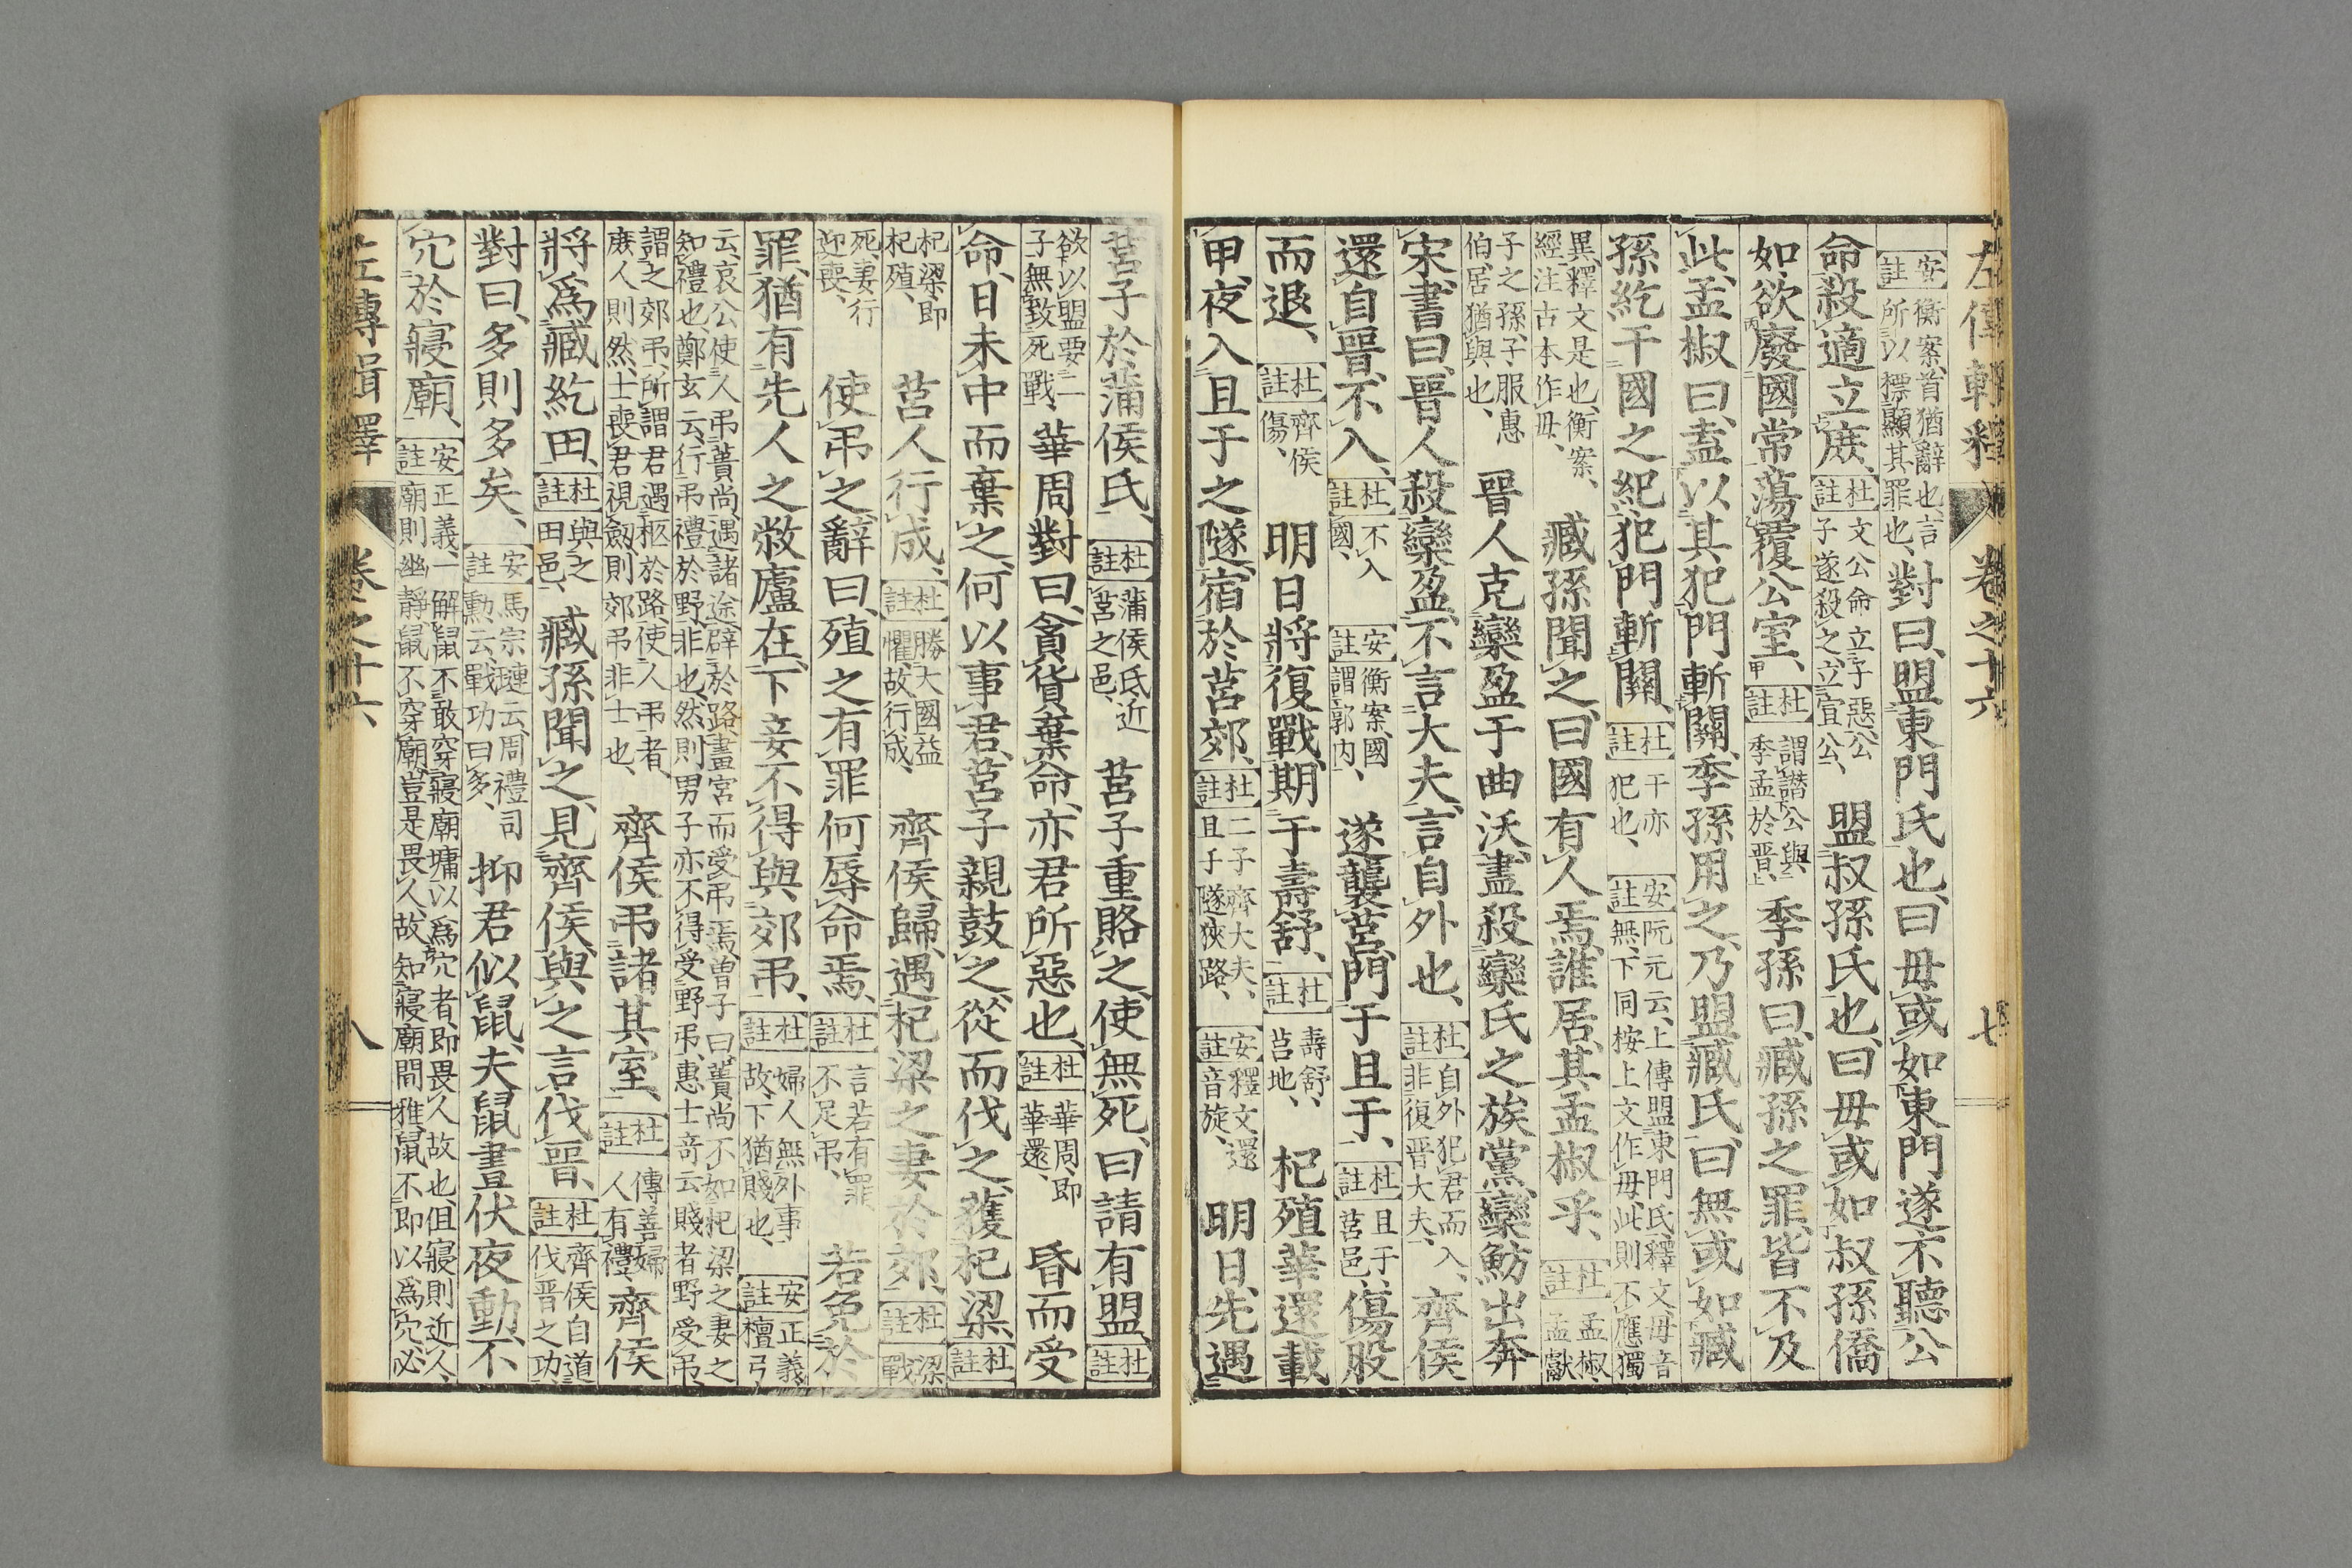 左傳輯釋 卷之十六 七
安註 衡案、首猶辭也、言所以標顯其罪也、對曰、盟東門氏也、曰、毋或如東門遂不聽公
命、殺適立庶、杜註 文公命立子惡、公子遂殺之、立宣公、盟叔孫氏也、曰、毋或如叔孫僑
如、欲廢國常、蕩覆公室、杜註 謂譖公與季孟於晉、季孫曰、臧孫之罪、皆不及
此、孟椒曰、盍以其犯門斬關、季孫用之、乃盟臧氏曰、無或如臧
孫紇干國之紀、犯門斬關、杜註 干亦犯也、安註 阮元云、上傳盟東門氏、釋文毋音無、下同、桉上文作毋、此則不應獨
異、釋文是也、衡案、經注古本作毋、臧孫聞之曰、國有人焉、誰居、其孟椒乎、杜註 孟椒、孟獻
子之孫、子服惠伯、居猶與也、晉人克欒盈于曲沃、盡殺欒氏之族黨、欒魴出奔
宋、書曰、晉人殺欒盈、不言大夫、言自外也、杜註 自外犯君而入、非復晉大夫、齊侯
還自晉、不入、杜註 不入國、安註 衡案、國謂郭內、遂襲莒、門于且于、杜註 且于、莒邑、傷股
而退、杜註 齊侯傷、明日將復戰、期于壽舒、杜註 壽舒、莒地、杞殖華還載
甲、夜入且于之隧、宿於莒郊、杜註 二子、齊大夫、且于隧狹路、安註 釋文、還音旋、明日、先遇
莒子於蒲侯氏、杜註 蒲侯氏、近莒之邑、莒子重賂之、使無死、曰、請有盟、杜註
欲以盟要二子、無致死戰、華周對曰、貪貨棄命、亦君所惡也、杜註 華周、卽華還、昏而受
命、日未中而棄之、何以事君、莒子親鼓之、從而伐之、獲杞梁、杜註
杞梁、卽杞殖、莒人行成、杜註 勝大國益懼、故行成、齊侯歸、遇杞梁之妻於郊、杜註 梁戰
死、妻行迎喪、使弔之、辭曰、殖之有罪、何辱命焉、杜註 言若有罪不足弔、若免於
罪、猶有先人之敝廬在、下妾不得與郊弔、杜註 婦人無外事、故、下猶賤也、安註 正義、檀弓
云、哀公使人弔蕢尙、遇諸途、辟於路、畫宮而受弔焉、曾子曰、蕢尙不如杞梁之妻之知禮也、鄭玄云、行弔禮於野非也、然則男子亦不得受野弔、惠士奇云、賤者野受弔、
謂之郊弔、所謂君遇柩於路、使人弔者、庶人則然、士喪君視斂、則郊弔非士也、齊侯弔諸其室、杜註 傳善婦人有禮、齊侯
將爲臧紇田、杜註 與之田邑、臧孫聞之、見齊侯、與之言伐晉、杜註 齊侯自道伐晉之功、
對曰、多則多矣、安註 馬宗璉云、周禮司勲云、戰功曰多、抑君似鼠、夫鼠晝伏夜動、不
穴於寢廟、安註 正義、一解鼠不敢穿寢廟墉以爲穴者、卽畏人故也、但寢則近人、廟則幽靜、鼠不穿廟、豈是畏人、故知寢廟閒雅、鼠不卽以爲穴、必
左傳輯釋 卷之十六 八